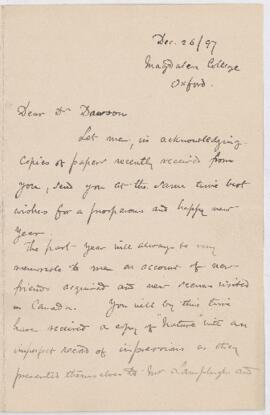 Dec. 26/97
Magdalen College
Oxford.
Dear Dr Dawson
Let me, in acknowledging
copies of papers recently received from
you, send you at the same time best
wishes for a prosperous and happy new
year.
The past year will always be very
memorable to me on account of new
friends acquired and new scenes visited
in Canada. You will by this time
have received a copy of "Nature" with an
imperfect record of impressions as they
presented themselves to Mr Lamplugh and